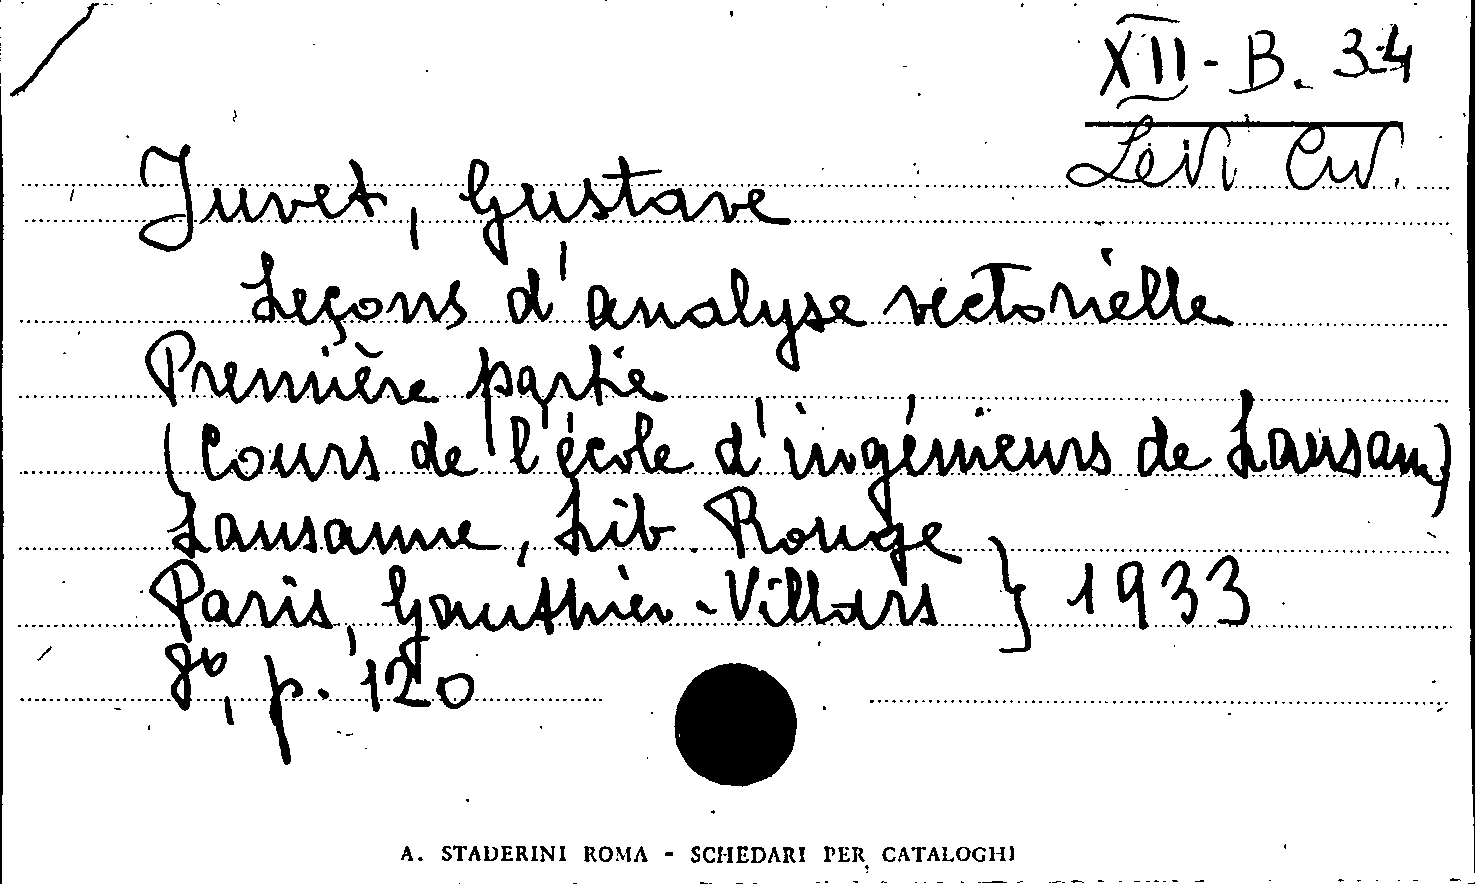 XII - B. 34
Levi Civ.
Juvet, Gustave
Leçons d'analyse vectorielle
Première partie
(Cours de l'école d'ingénieurs de Lausann)
Lausanne, Lib. Rouge
Paris, Gauthier-Villars } 1933
8º, p. 120
A. STADERINI ROMA - SCHEDARI PER CATALOGHI